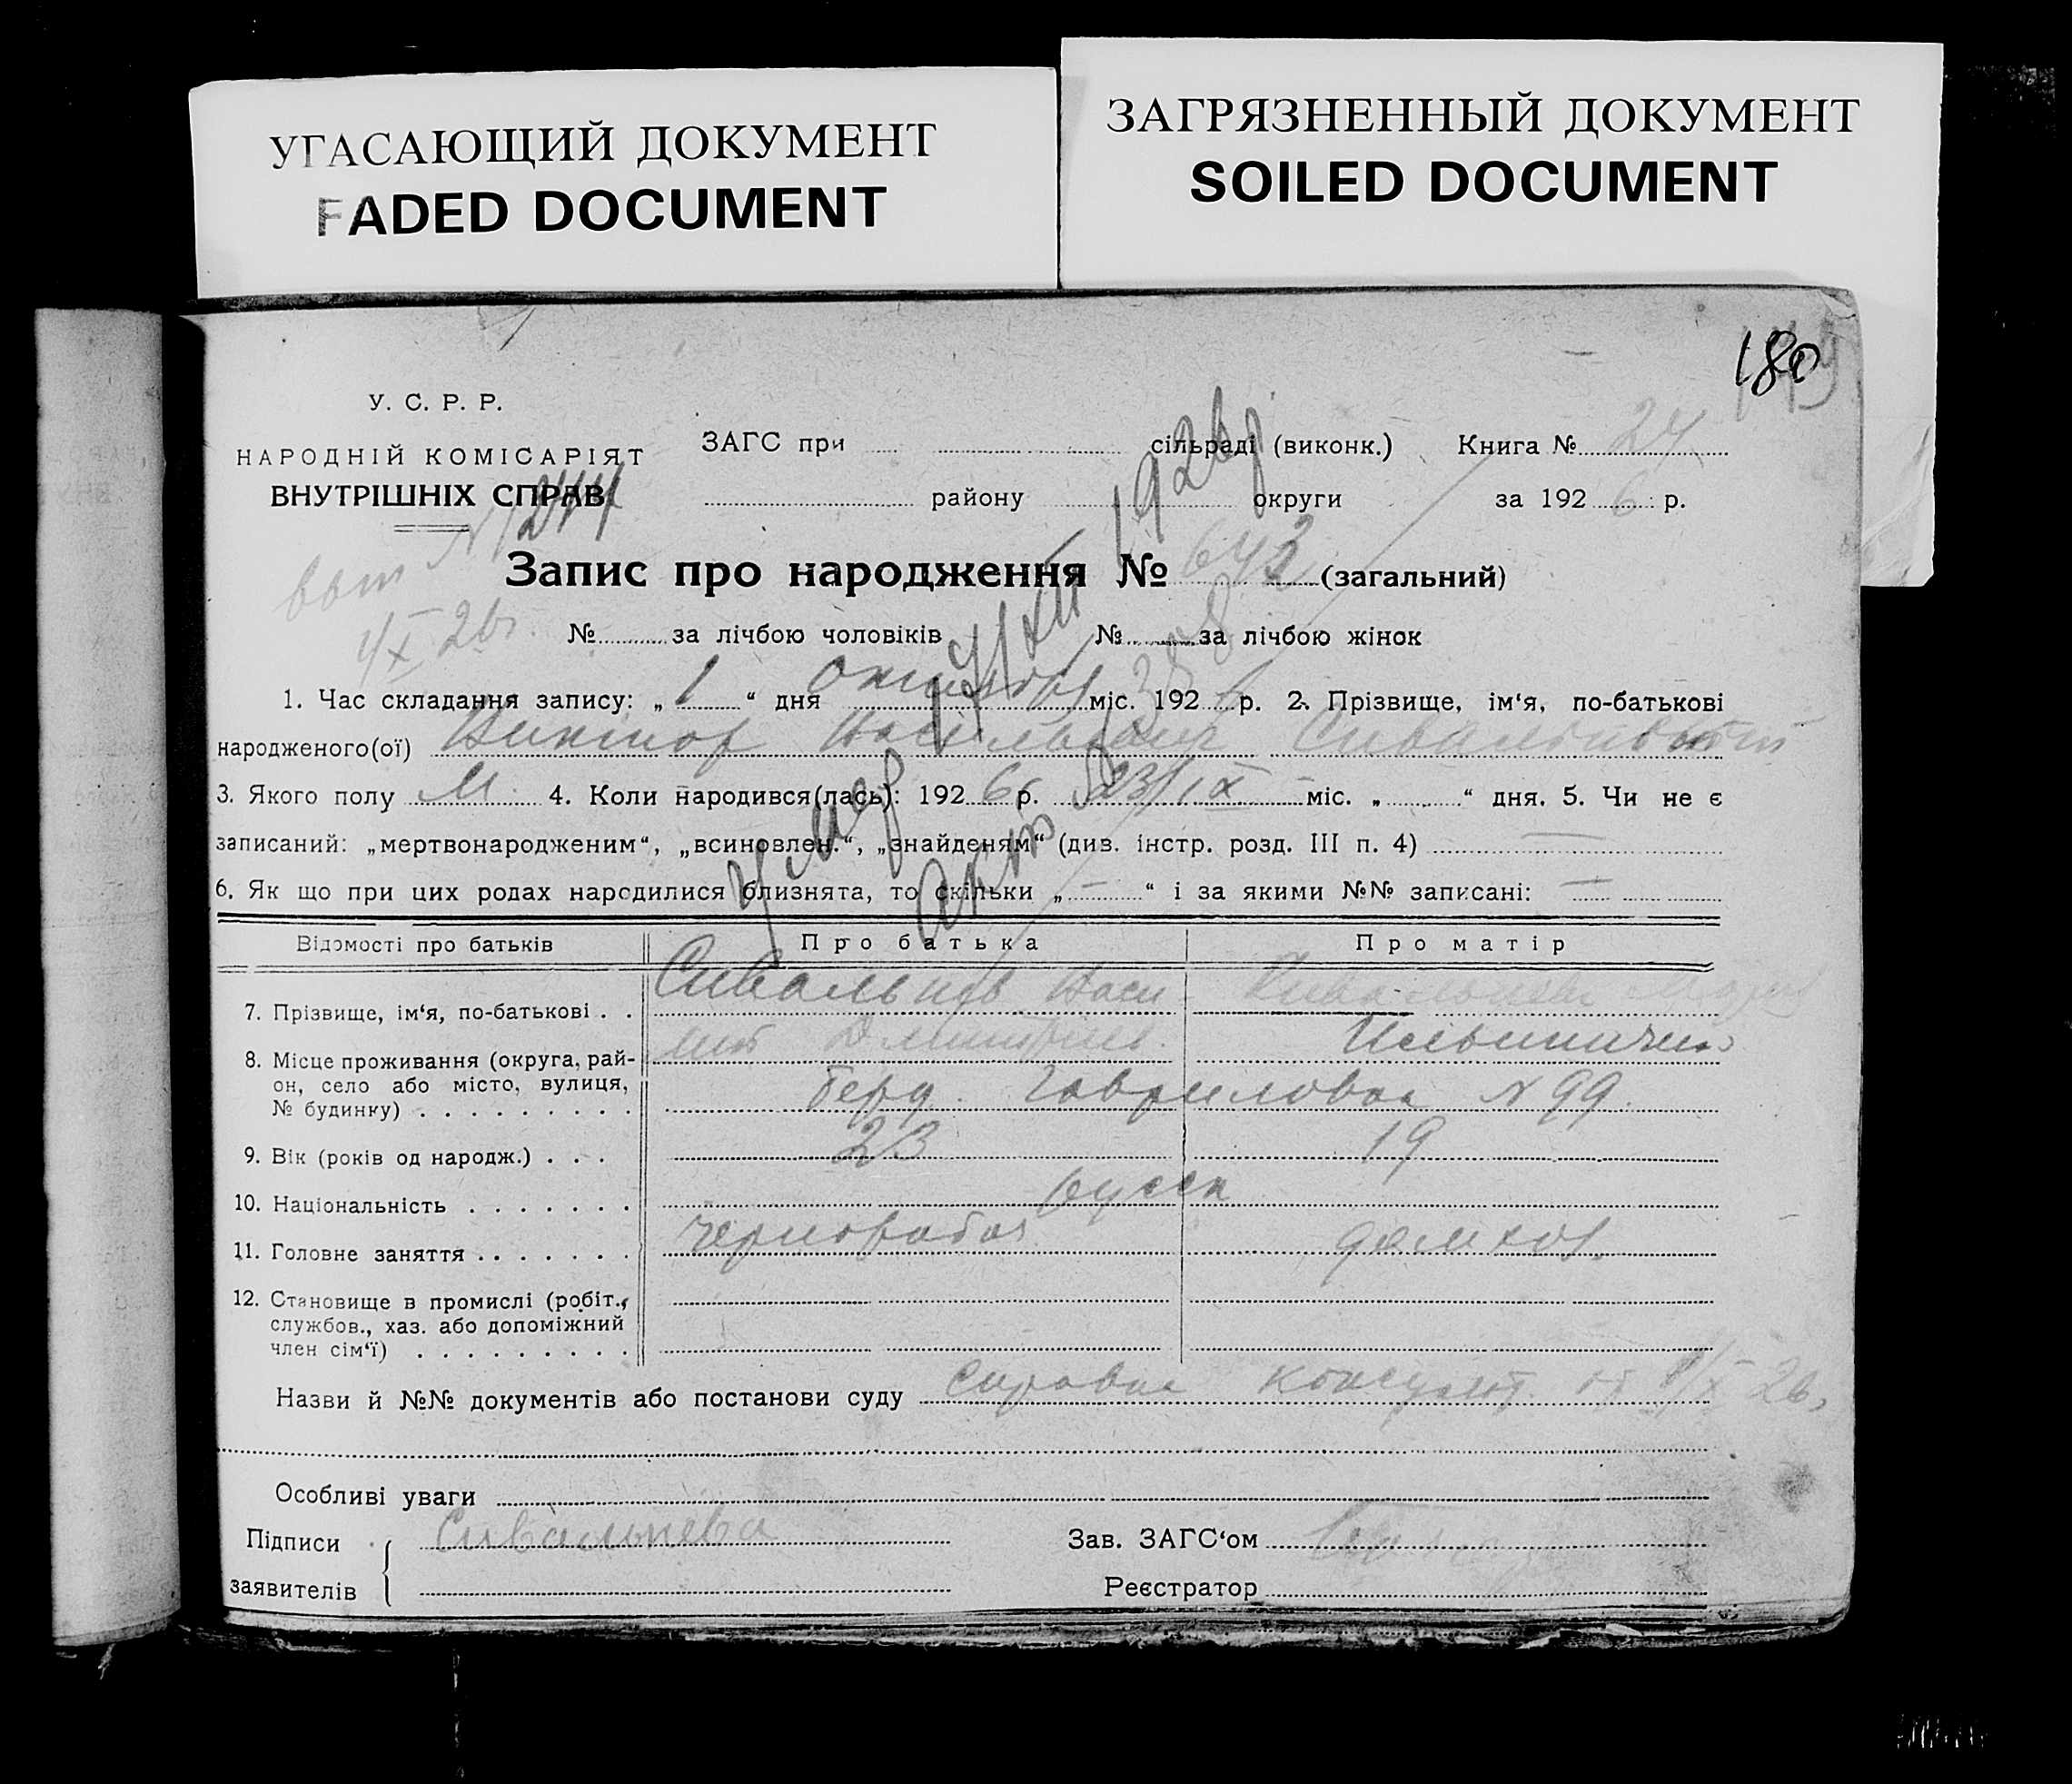 УГАСАЮЩИЙ ДОКУМЕНТ
FADED DOCUMENT
ЗАГРЯЗНЕННЫЙ ДОКУМЕНТ
SOILED DOCUMENT
180
У. С. Р. Р.
НАРОДНІЙ КОМІСАРІЯТ
ВНУТРІШНІХ СПРАВ
ЗАГС при сільраді (виконк.) Книга № 24
району округи за 1926 р.
Запис про народження № 643 (загальний)
№ за лічбою чоловіків № за лічбою жінок
1. Час складання запису: „ 1 “ дня октября міс. 1926 р. 2. Прізвище, ім‘я, по-батькові
народженого(ої) Виктор
3. Якого полу М. 4. Коли народився(лась): 1926 р. 23/IX міс. „ “ дня. 5. Чи не є
записаний: „мертвонародженим“, „всиновлен.“, „знайденям“ (див. інстр. розд. III п. 4) —
6. Як що при цих родах народилися близнята, то скільки „ — “ і за якими №№ записані: —
умер 17/XII 1926 г
акт
Відомості про батьків Про батька Про матір
7. Прізвище, ім‘я, по-батькові . . Сивальнев Васи
8. Місце проживання (округа, рай-
он, село або місто, вулиця,
№ будинку) . . . . . . . . . Берд. Гавриловка № 99
9. Вік (років од народж.) . . . 23 19
10. Національність . . . . . . . русск
11. Головне заняття . . . . . . . чернорабоч. домхоз.
12. Становище в промислі (робіт.,
службов., хаз. або допоміжний
член сім‘ї) . . . . . . . . .
Назви й №№ документів або постанови суду справка консульт. от 1/X 26.
Особливі уваги
Підписи Сивальнева Зав. ЗАГС‘ом
заявителів Реєстратор